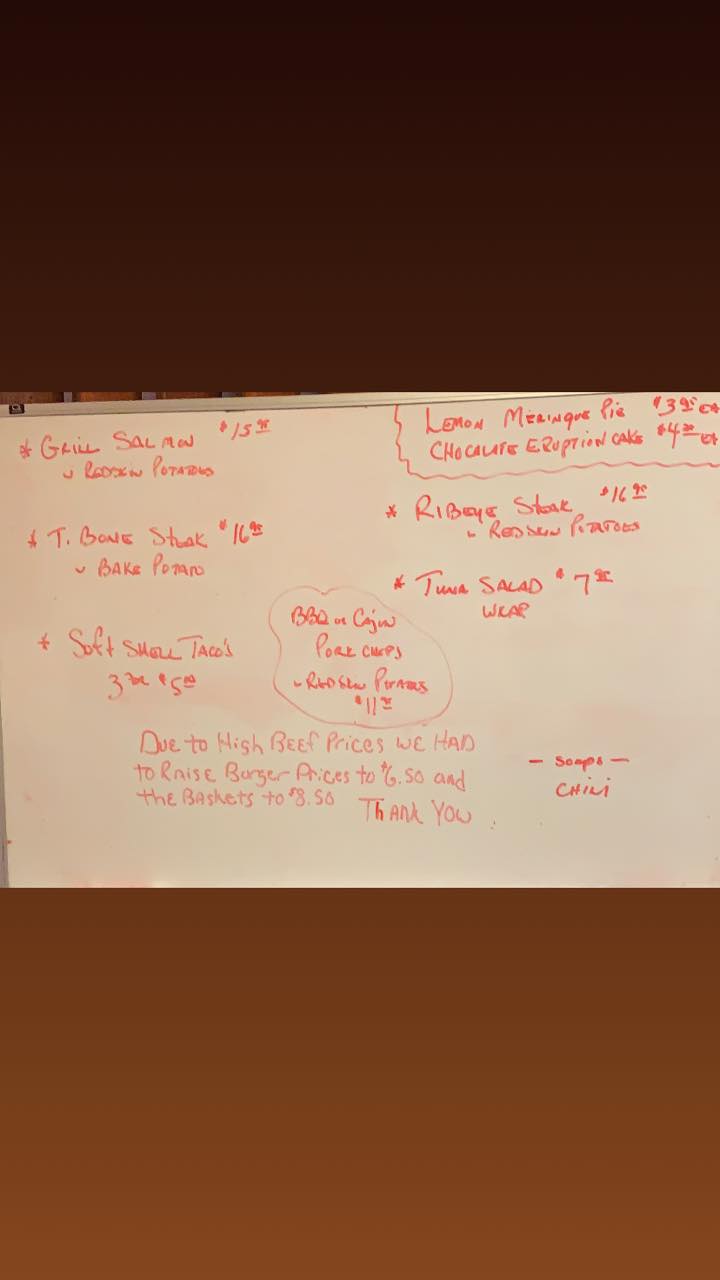 * Grill Salmon $15.95
w Redskin Potatoes
* T. Bone Steak $16.95
w Bake Potato
* Soft Shell Taco's
3 for $5.00
Lemon Meringue Pie $3.95 ea
Chocalate Eruption Cake $4.50 ea
* Ribeye Steak $16.95
w Redskin Potatoes
* Tuna Salad $7.95
Wrap
BBQ or Cajun
Pork Chops
w Redskin Potatoes
$11.95
Due to High Beef Prices We Had
to Raise Burger Prices to $6.50 and
the Baskets to $8.50 Thank You
- Soups -
Chili